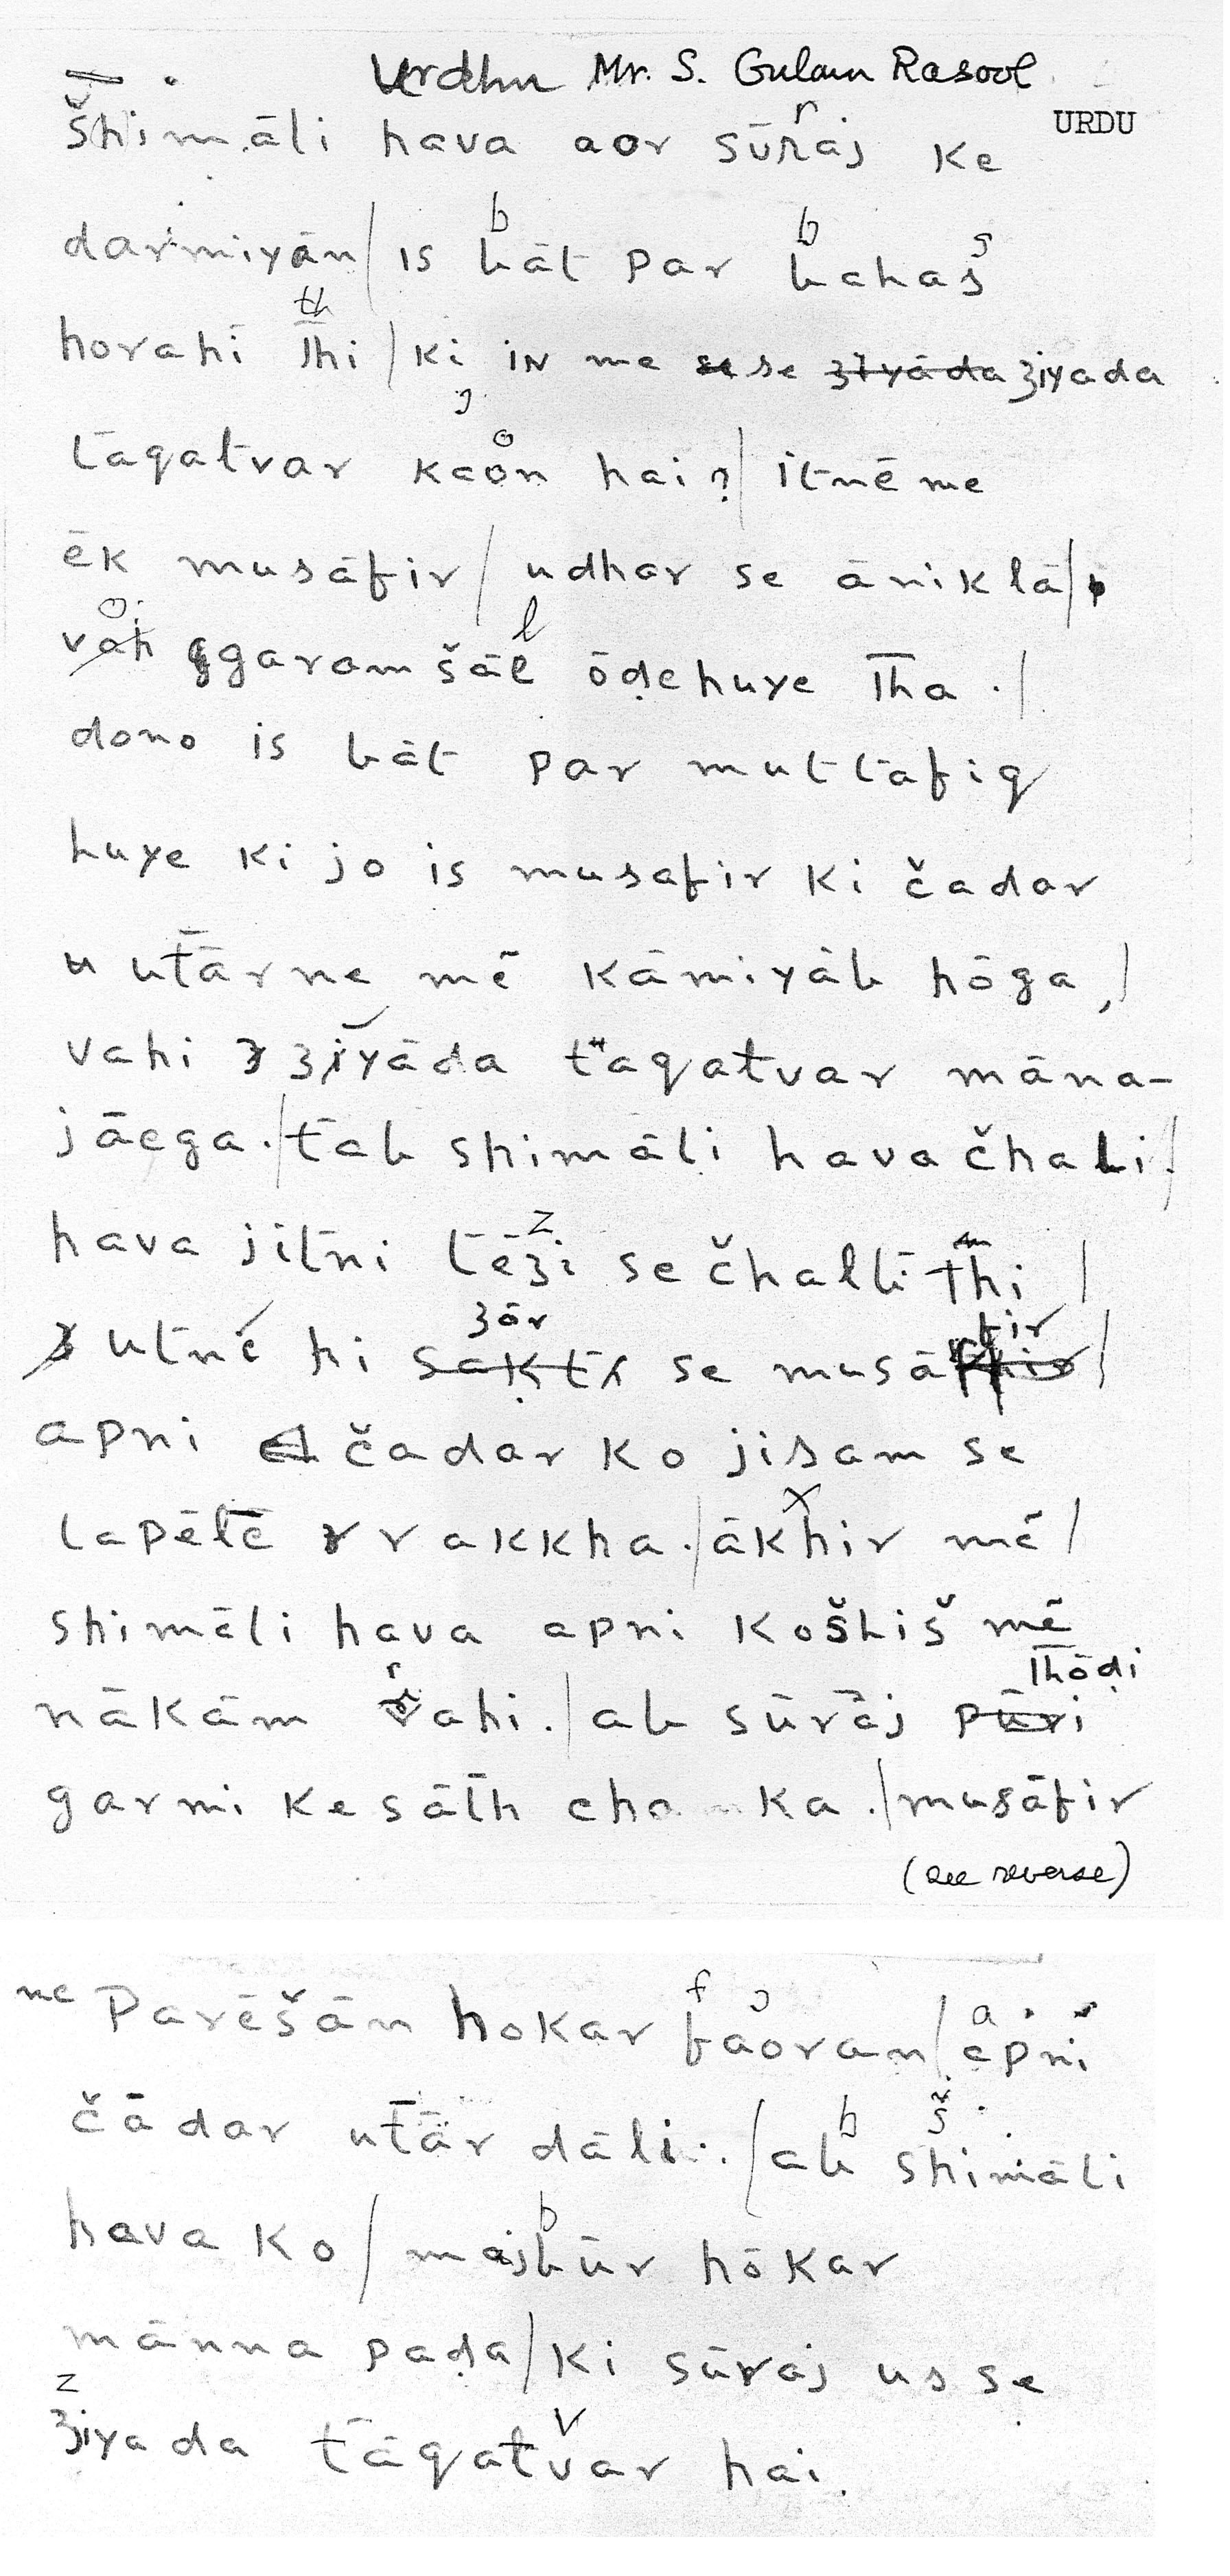 Urdhu Mr. S. Gulam Rasool
URDU
šhimāli hava aor sūraj ke
darmiyān/ is bāt par bahas
horahi thi / ki in me se ziyada
tāqatvar kaon hai?/ itnē me
ēk musāfir/ udhar se āniklā/
voh garam šāl ōḍehuye tha ./
dono is bāt par muttafiq
huye ki jo is musafir ki čadar
utārne mē kāmiyāb hōga,/
vahi ziyāda tāqatvar māna-
jāega./ tab shimāli hava čhali./
hava jitni tēzi se čhalti thi /
utnē hi zōr se musāfir /
apni čadar ko jisam se
lapētē rakkha./ ākhir mē /
shimāli hava apni košhiš mē
nākām rahi./ ab sūraj thōḍi
garmi ke sāth cha ka./ musāfir
(see reverse)
ne parēšān hokar faoran/ apni
čādar utār dāli./ ab shimāli
hava ko/ majbūr hōkar
mānna paḍa/ ki sūraj us se
ziyada tāqatvar hai.